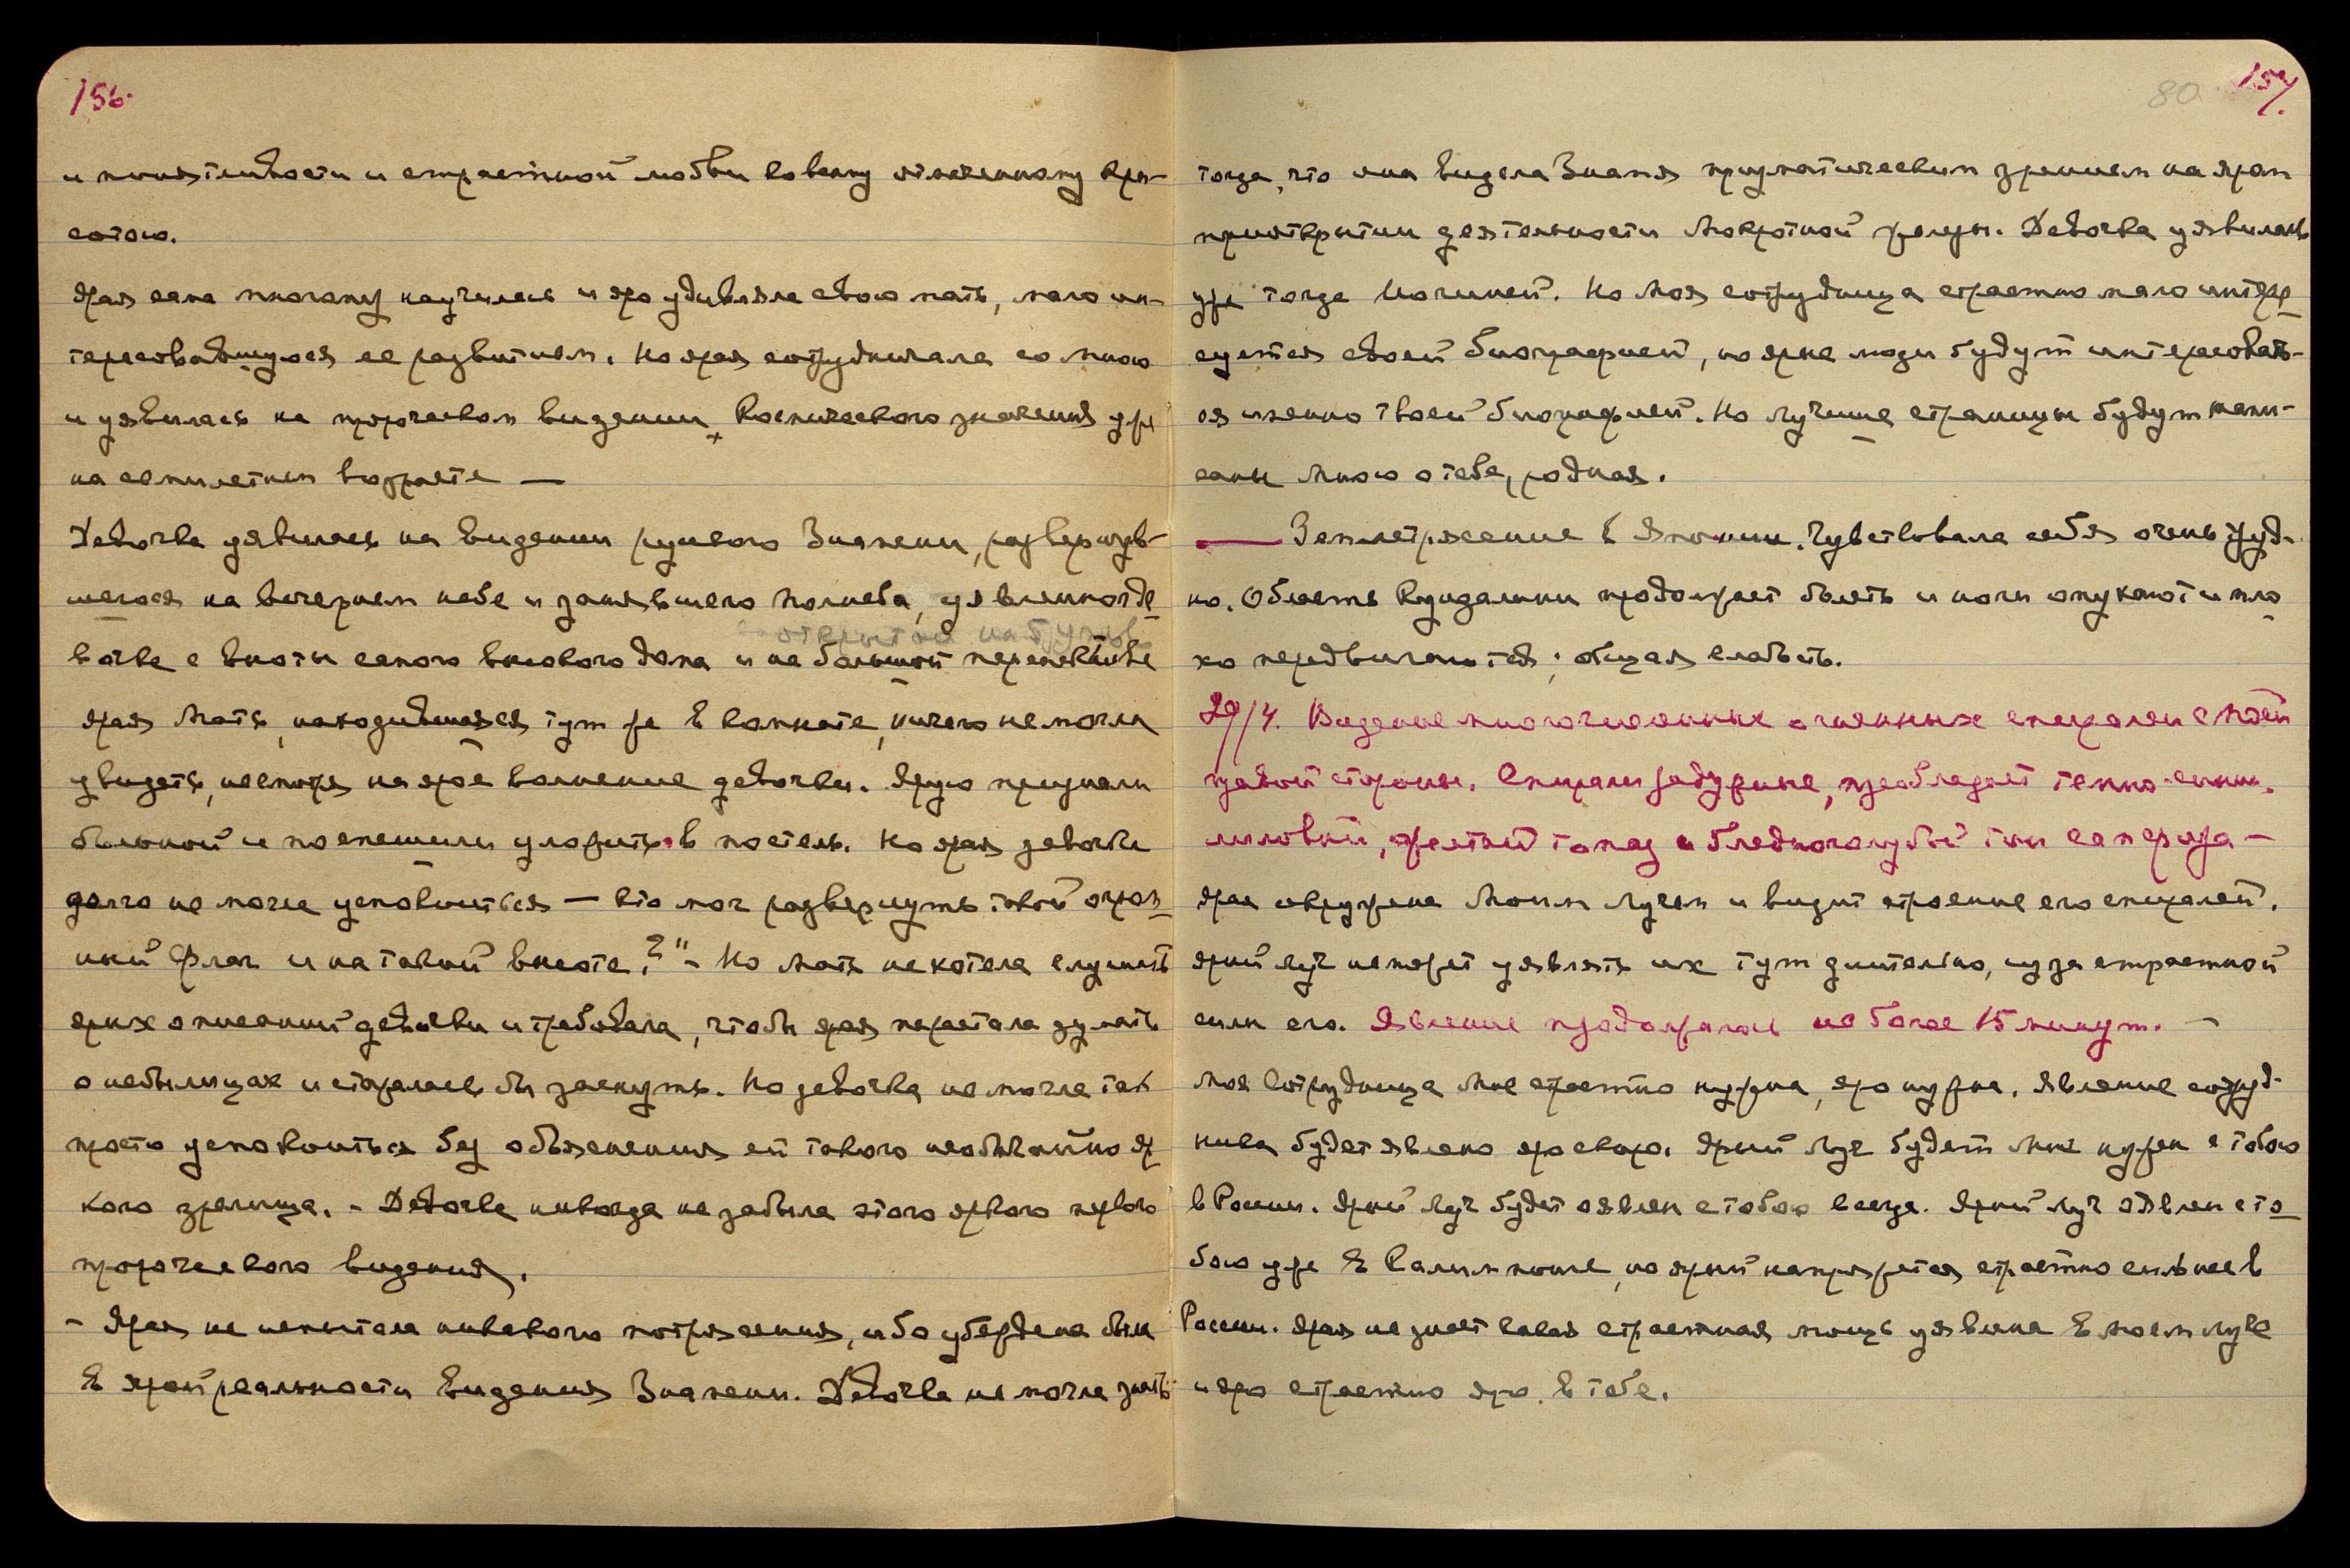 156.
и понятливости и страстной любви ко всему отмеченному кра-
сотою.
Ярая сама многому научилась и яро удивляла свою мать, мало ин-
тересовавшуюся ее развитием. Но ярая сотрудничала со мною
и уявилась на пророческом видении Космического значения уже
на семилетнем возрасте —
Девочка уявилась на видении руского Знамени, развернув-
шегося на вечернем небе и занявшего полнеба, уявленного де-
открытом на
вочке с высоты самого высокого дома и на большой перспективе
ярая Мать, находившаяся тут же в комнате, ничего не могла
увидеть, несмотря на ярое волнение девочки. Ярую признали
больной и поспешили уложить в постель. Но ярая девочка
долго не могла успокоиться — кто мог развернуть такой огром-
ный Флаг и на такой высоте?" – Но Мать не хотела слушать
ярых описаний девочки и требовала, чтобы ярая перестала думать
о небылицах и старалась бы заснуть. Но девочка не могла так
просто успокоиться без объяснения ей такого необычайно яр
кого зрелища. – Девочка никогда не забыла этого яркого первого
пророческого видения.
– Ярая не испытала никакого потрясения, ибо убеждена была
в ярой реальности видения Знамени. Девочка не могла знать
80 157.
тогда, что она видела Знамя призматическим зрением на яром
приоткрытии деятельности Мокротной железы. Девочка уявилась
уже тогда Йогиней. Но Моя сотрудница страстно мало интере
суется своей биографией, но ярые люди будут интересовать-
ся именно твоей биографией. Но лучшие страницы будут напи-
саны Мною о тебе, родная.
— Землетрясение в Японии. Чувствовала себя очень труд-
но. Область Кундалини продолжает болеть и ноги опухают и пло
хо передвигаются; общая слабость.
29/4. Видение многочисленных огненных спиралей с моей
правой стороны. Спирали зазубрине, преобладает темно-синий,
лиловый, желтый топаз и бледноголубый тон сапфира –
Ярая окружена Моим Лучем и видит строение его спиралей.
ярый луч не может уявлять их тут длительно, из за страстной
силы его. Явление продолжалось не более 15 минут. –
Моя Сотрудница Мне страстно нужна, яро нужна. Явление сотруд-
ника будет явлено яро скоро. Ярый Луч будет Мне нужен с тобою
в России. Ярый Луч будет оявлен с тобою всегда. Ярый Луч оявлен с то
бою уже в Калимпонге, но ярый напряжется страстно сильнее в
России. Ярая не знает какая страстная мощь уявлена в моем луче
и яро страстно яро в тебе.